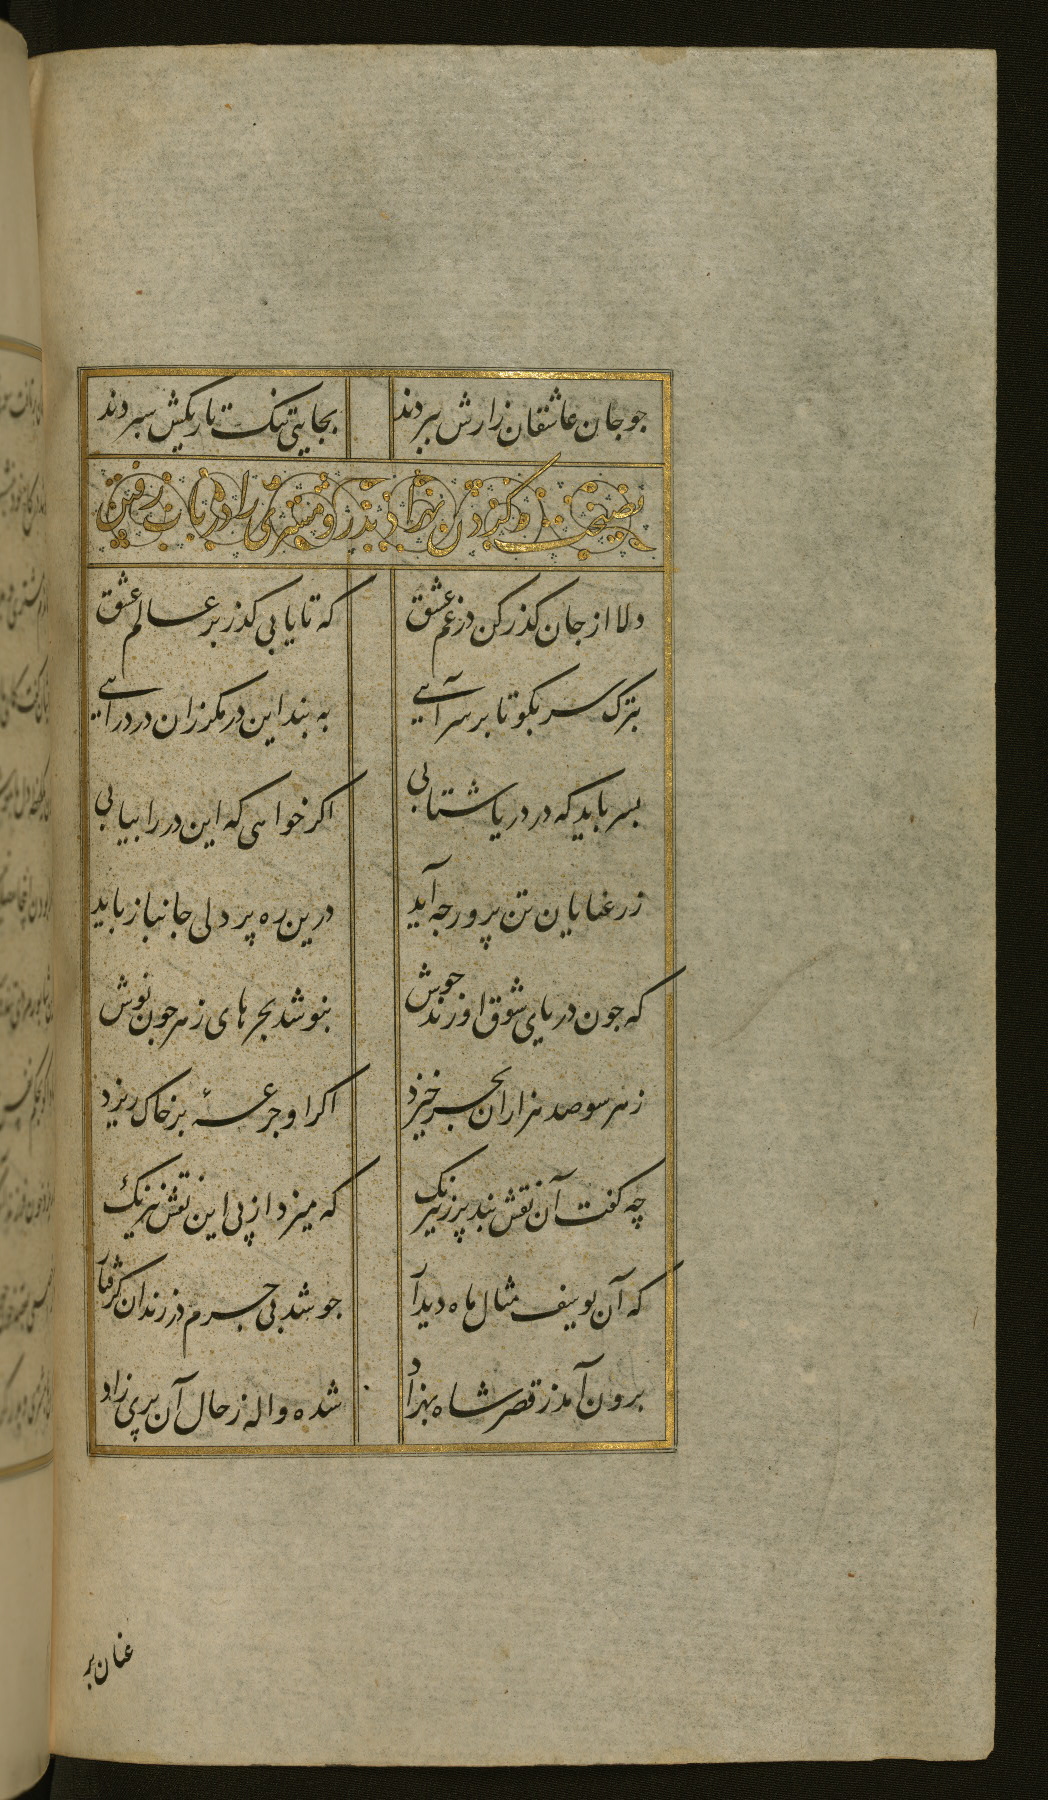 جو جان عاشقان زارش ببردند بجایی تنک تاریکش سپردند
نصیحت کردن بهزاد پدر او مشتری را در باب رفتن
دلا از جان کذر کن در غم عشق که تا یابی کذر بر عالم عشق
بترک سر بکو تا بر سر آیی به بند این در مکر زان در درآیی
بسر باید که در دریا شتابی اکر خواهی که این در را بیابی
ز رعنایان تن پرور جه آید درین ره پر دلی جانباز باید
که جون دریای شوق او زند جوش بنوشد بحرهای زهر جون نوش
ز هر سو صد هزاران بحر خیزد اکر او جرعهٔ بر خاک ریزد
چه کفت آن نقش بند پر ز نیرنک که میزد از پی این نقش نیرنک
که آن یوسف مثال ماه دیدار جو شد بی جرم در زندان کرفتار
برون آمد ز قصر شاه بهزاد شده واله ز حال آن پری زاد
عنان بر